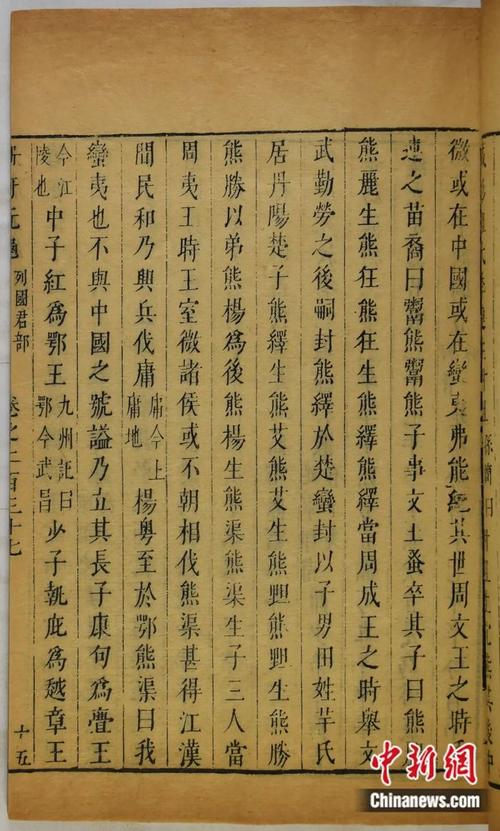 微或在中國或在蠻夷弗能紀其世周文王之時
連之苗裔曰鬻熊鬻熊子事文王蚤卒其子曰熊
熊麗生熊狂熊狂生熊繹熊繹當周成王之時舉文
武勤勞之後嗣封熊繹於楚蠻封以子男田姓芊氏
居丹陽楚子熊繹生熊艾熊艾生熊䵣熊䵣生熊勝
熊勝以弟熊楊為後熊楊生熊渠熊渠生子三人當
周夷王時王室微諸侯或不朝相伐熊渠甚得江漢
間民和乃興兵伐庸庸今上庸地楊粵至於鄂熊渠曰我
蠻夷也不與中國之號謚乃立其長子康句為亶王
今江陵也中子紅為鄂王九州記曰鄂今武昌少子執疵為越章王
冊府元龜 列國君部 卷之二百三十七 十五
中新网
Chinanews.com